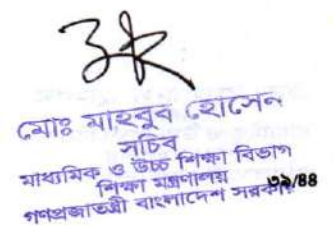 মোঃ মাহবুব হোসেন
সচিব
মাধ্যমিক ও উচ্চ শিক্ষা বিভাগ
শিক্ষা মন্ত্রণালয়
গণপ্রজাতন্ত্রী বাংলাদেশ সরকার
৩৯/৪৪